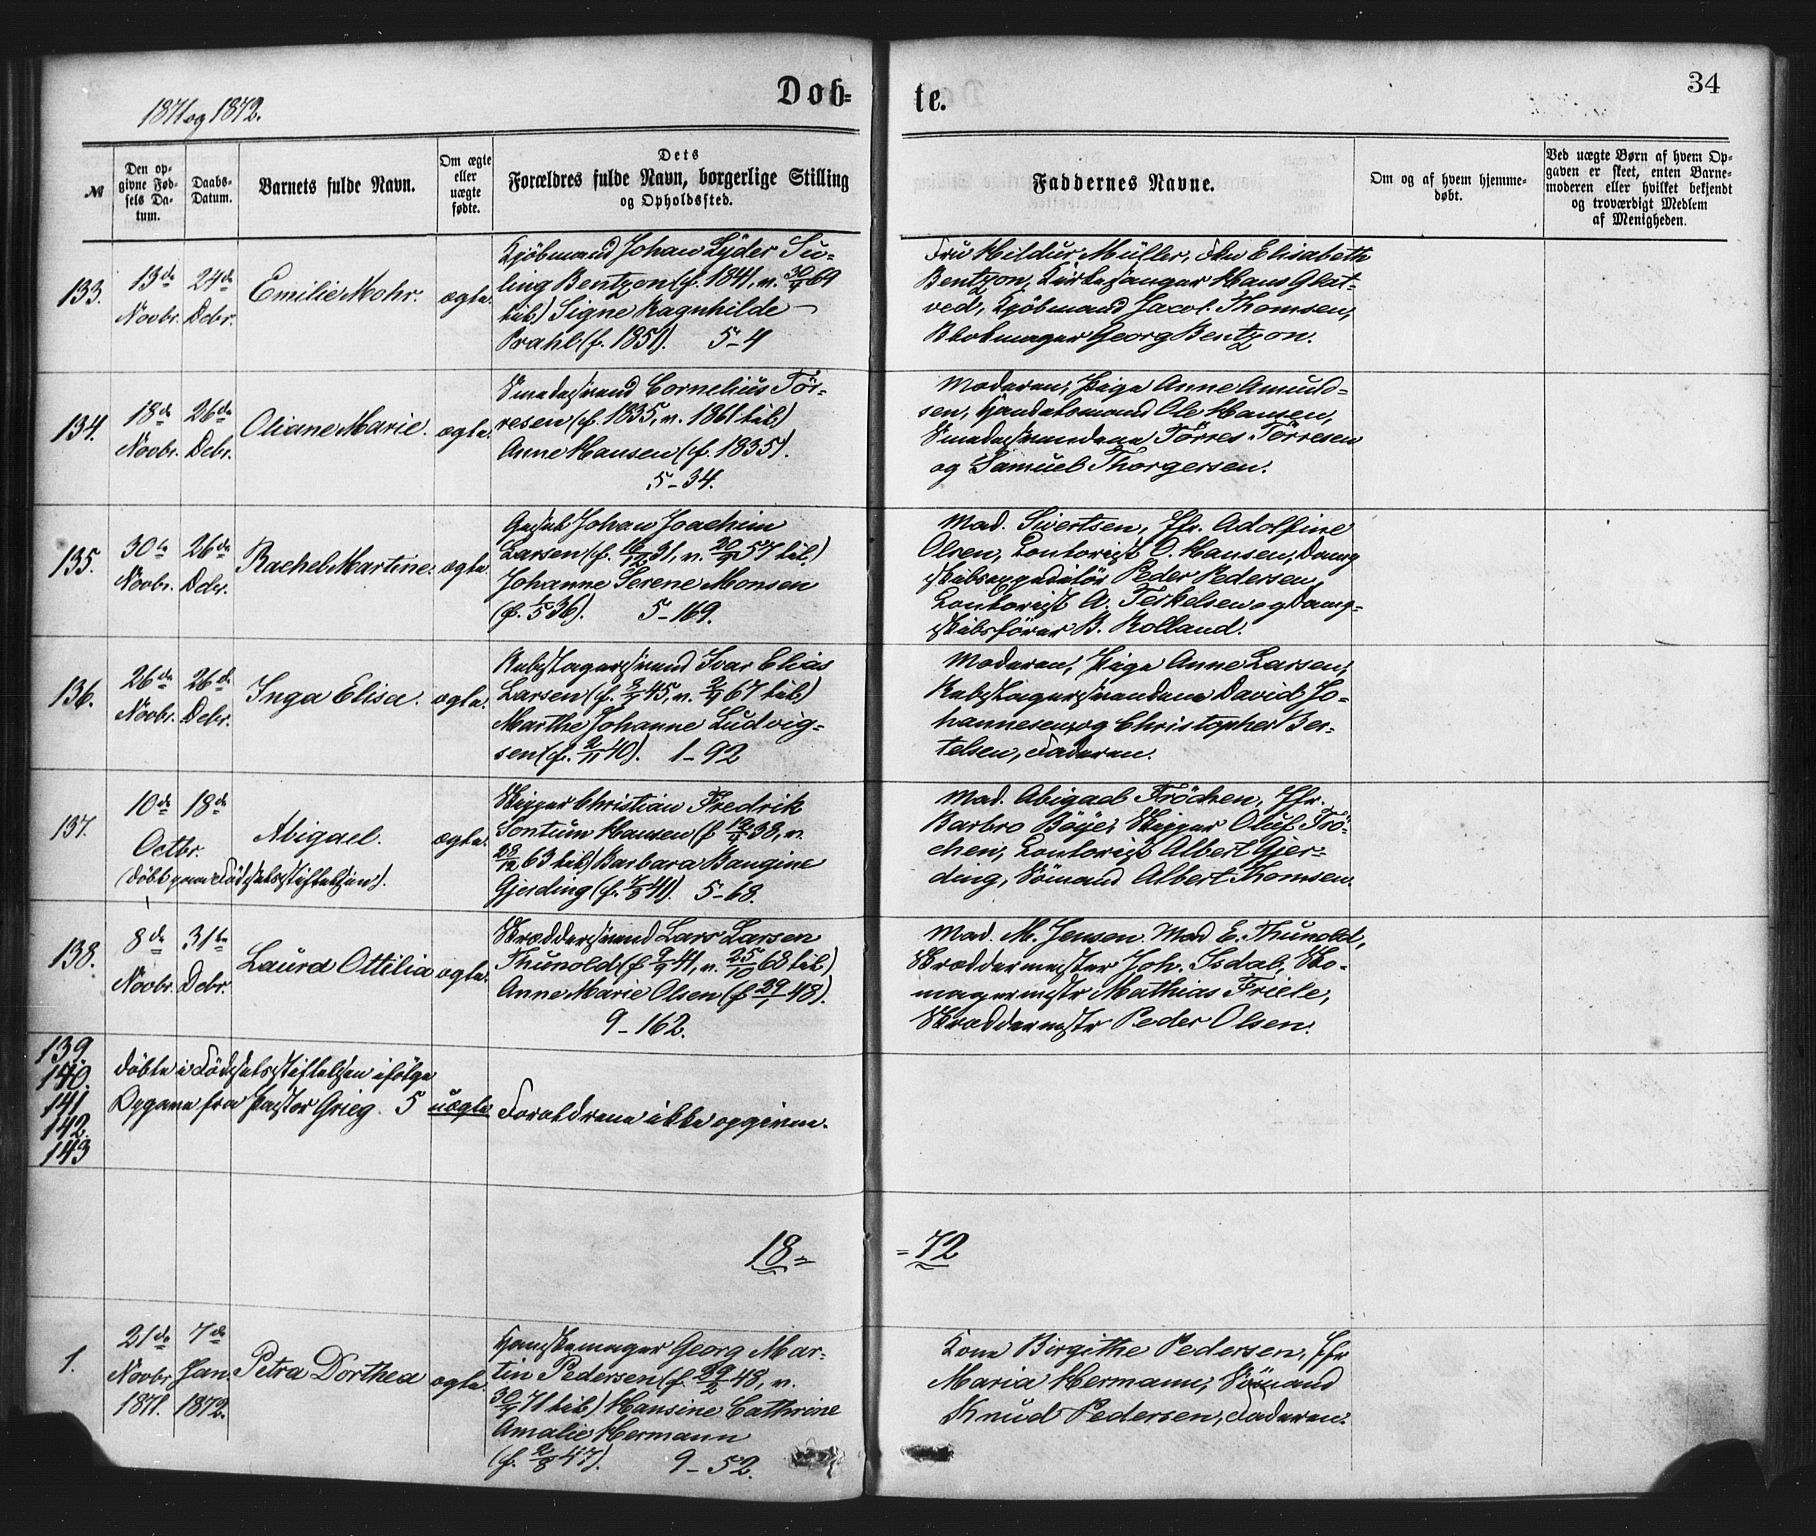 1871 og 1872.
Døb-
te.
34
№
Den op-
givne Fød-
sels Da-
tum.
Daabs-
Datum.
Barnets fulde Navn.
Om ægte
eller
uægte
fødte.
Dets
Forældres fulde Navn, borgerlige Stilling
og Opholdssted.
Faddernes Navne.
Om og af hvem hjemme-
døbt.
Ved uægte Børn af hvem Op-
gaven er skeet, enten Barne-
moderen eller hvilket bekjendt
og troværdigt Medlem
af Menigheden.
133.
13de
Novbr.
24de
Debr.
Emilie Mohr.
ægte.
Kjøbmand Johan Lyder Su-
ling Bentzon (f. 1841, v. 30/9 69
til) Signe Ragnhilde
Prahl (f. 1851). 5-4
Fru Hildur Müller, Fru Elisabeth
Bentzon, Kirkesanger Hans Glat-
ved, Kjøbmand Jacob Thomsen,
Blokmager Georg Bentzon.
134.
18de
Novbr.
26de
Debr.
Oliane Marie.
ægte.
Smedesvend Cornelius Tör-
resen (f. 1835, v. 1861 til)
Anne Hansen (f. 1835).
5-34.
Moderen, Pige Anne Amund-
sen, Handelsmand Ole Hansen,
Smedesvendene Törres Törresen
og Samuel Thorgersen.
135.
30te
Novbr.
26de
Debr.
Rachel Martine.
ægte.
Johan Joachim
Larsen (f. 16/12 31, v. 20/9 57 til)
Johanne Serene Monsen
(f. 1/5 36). 5-169.
Mad. Sivertsen, Jfr. Adolfine
Olsen, Contorist O. Hansen, Damp-
skibsexpeditör Peder Pedersen,
Contorist A. Terkelsen og Damp-
skibsförer B. Rolland.
136.
26de
Novbr.
26de
Debr.
Inga Elisa.
ægte.
Rebslagersvend Ivar Elias
Larsen (f. 45, v. 67 til)
Marthe Johanne Ludvig-
sen (f. 2/11 40). 1-92
Moderen, Pige Anne Larsen,
Rebslagersvendene David Jo-
hannesen og Christopher Ber-
telsen, Faderen.
137.
10de
18de
Octbr.
(döbt paa Födselsstiftelsen).
Abigael.
ægte.
Skipper Christian Fredrik
Tontum Hansen (f 38, v.
28/12 63 til) Barbara Bangine
Gjerding (f. 41). 5-68.
Mad. Abigael Fröchen, Jfr.
Barbro Böye, Skipper Oluf Frö-
chen, Contorist Albert Gjer-
ding, Sömand Albert Thomsen.
138.
8de
Novbr.
31te
Debr.
Laura Ottilia
ægte.
Skræddersvend Lars Larsen
Thunold (f 41, v. 25/10 68 til)
Anne Marie Olsen (f 29/1 48).
9-162.
Mad. M. Jensen. Mad E. Thunold,
Skræddermester Joh. Isdal, Sko-
magermestr Mathias Friele,
Skræddermestr Peder Olsen.
139.
140.
141.
142.
143
döbte i Födselsstiftelsen ifölge
Opgave fra Pastor Grieg. 5
uægte
Forældrene ikke opgivne.
18=
=72
1.
21de
Novbr.
1871.
7de
Jan.
1872.
Petra Dorthea
ægte.
Hanskemager Georg Mar-
tin Pedersen (f. 29/2 48, v.
71 til) Hansine Cathrine
Amalie Hermann
(f. 2/8 47). 9-52.
Kone Birgithe Pedersen, Jfr
Maria Hermann, Sömand
Knud Pedersen, Faderen.